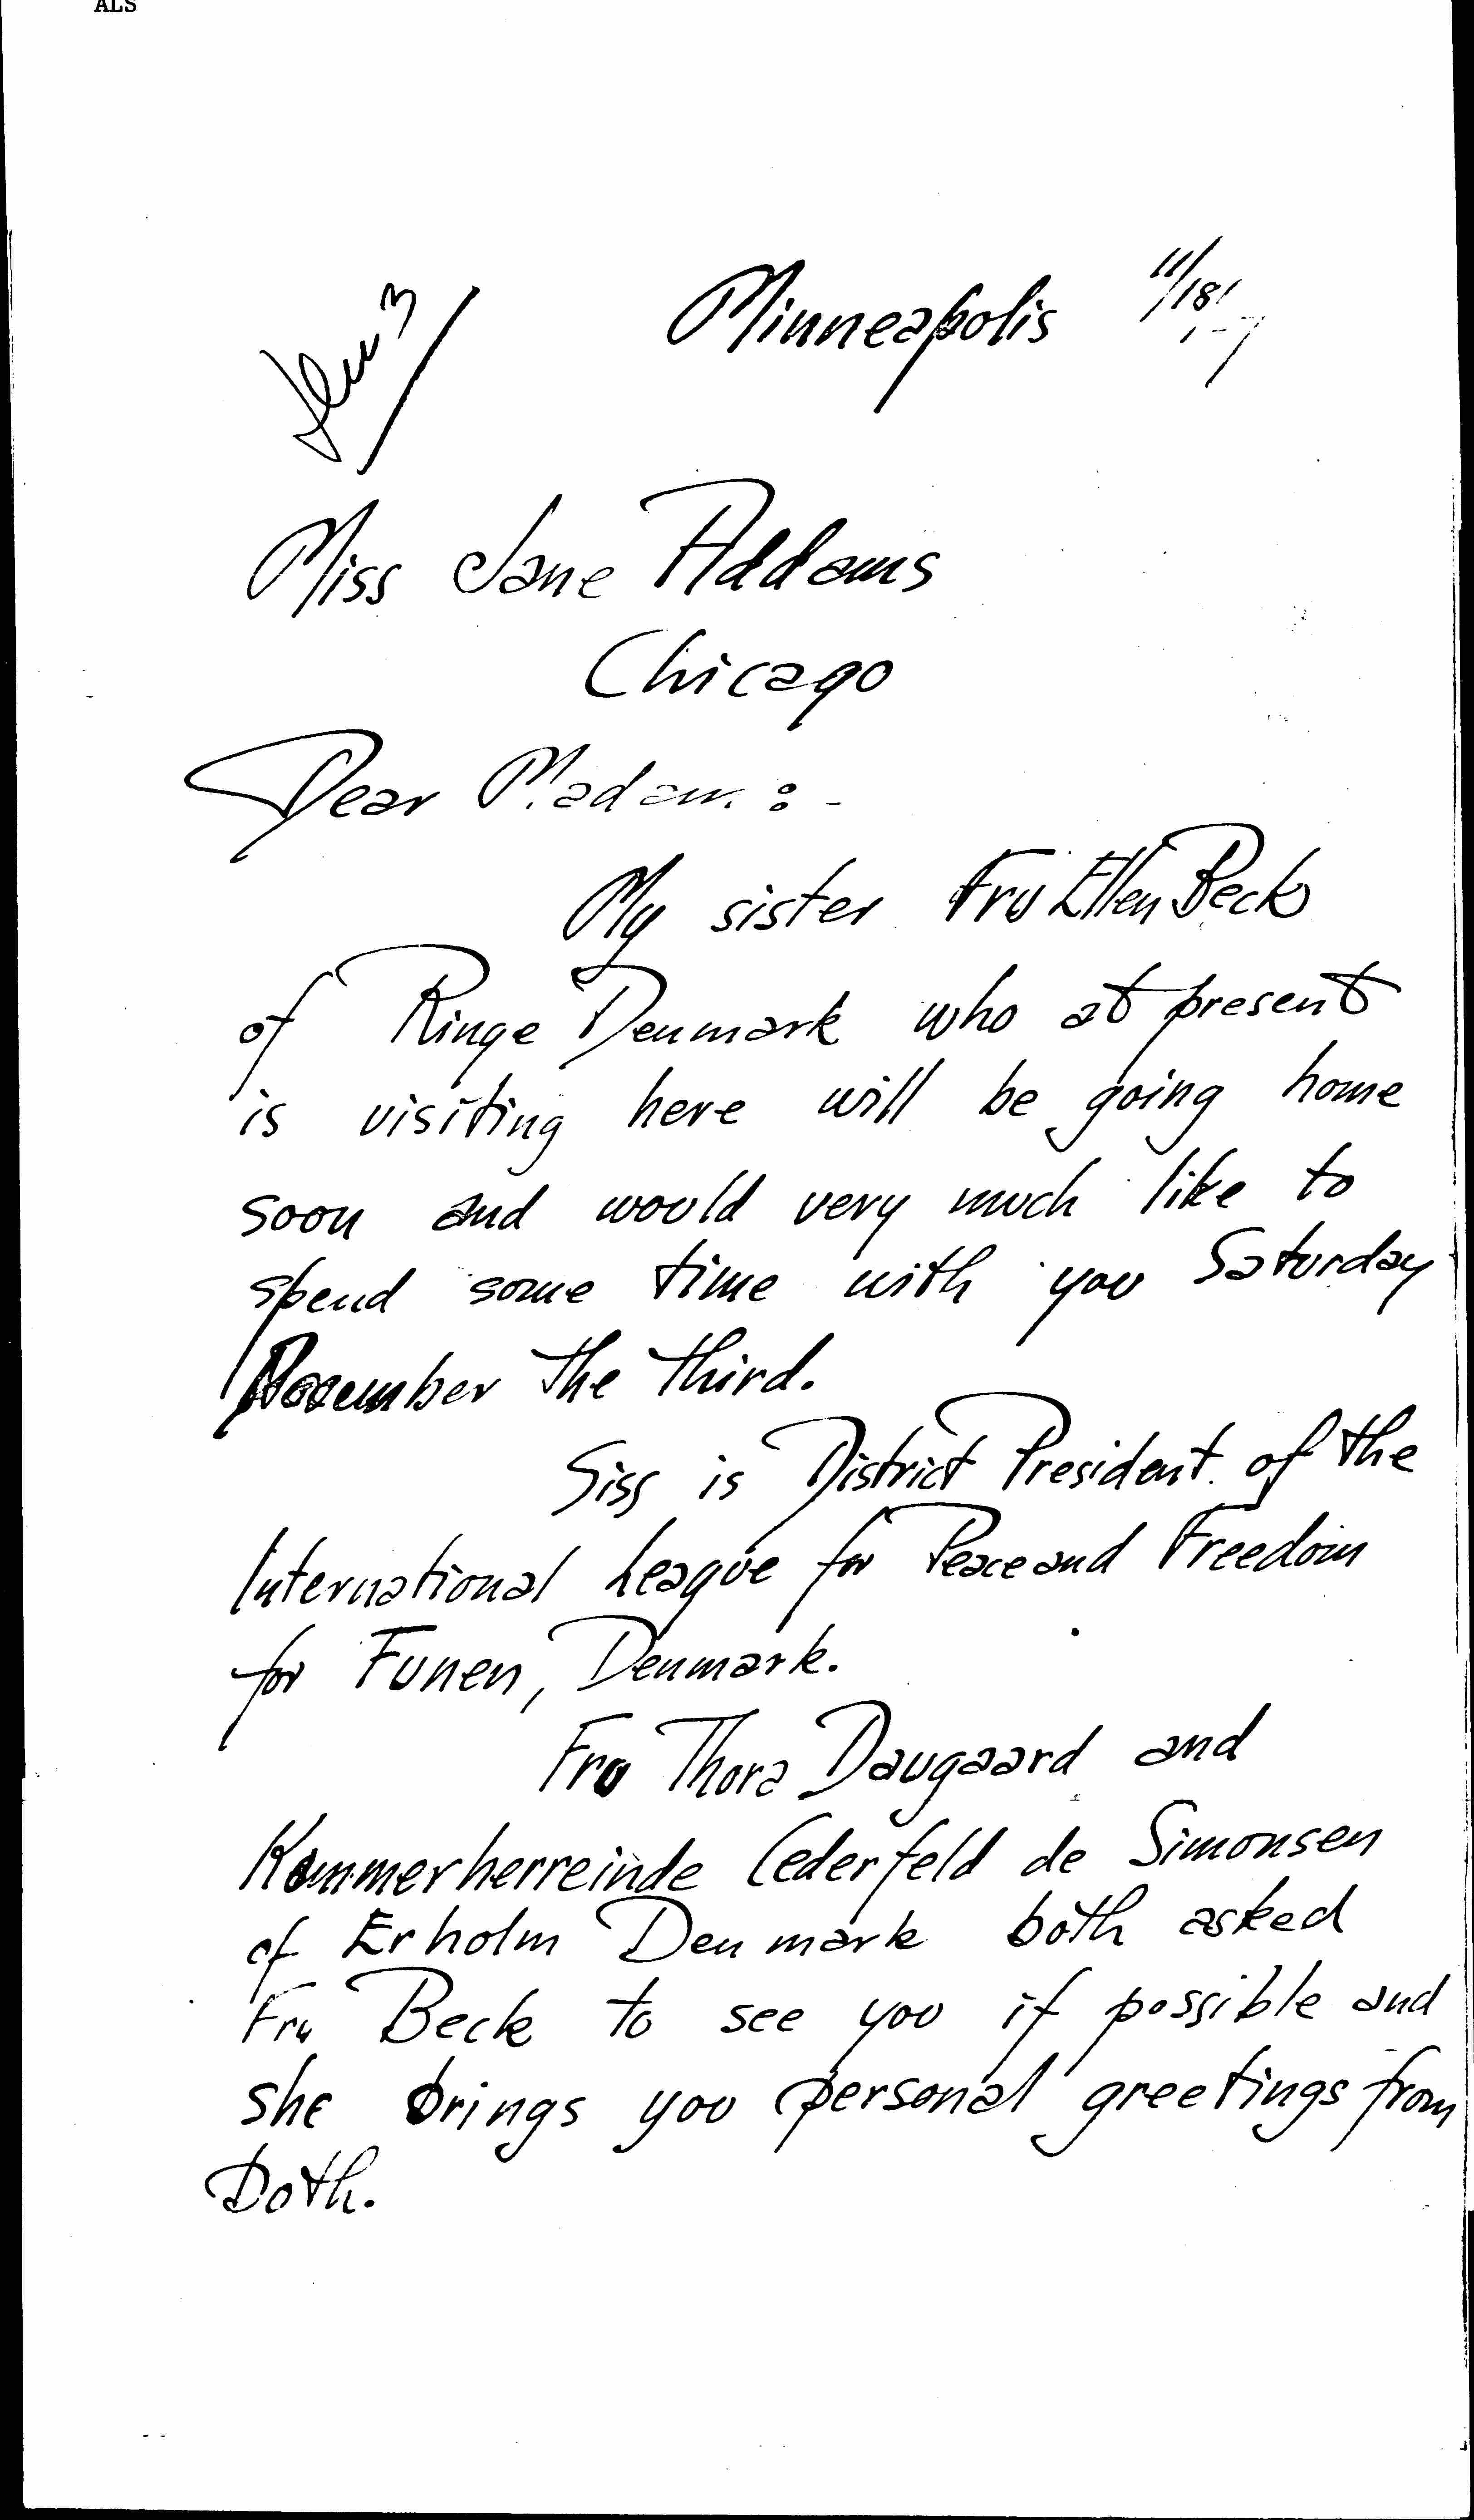 ALS
Minneapolis 11/18
Miss Jane Addams
Chicago
Dear Madam:-
My sister Fru Ellen Beck
of Ringe Denmark who at present
is visiting here will be going home
soon and would very much like to
spend some time with you Saturday
November the third.
Siss is District President of the
International League for Peace and Freedom
for Funen, Denmark.
Fru Thora Daugaard and
Kammerherreinde Cederfeld de Simonsen
of Erholm Denmark both asked
Fru Beck to see you if possible and
she brings you personal greetings from
both.